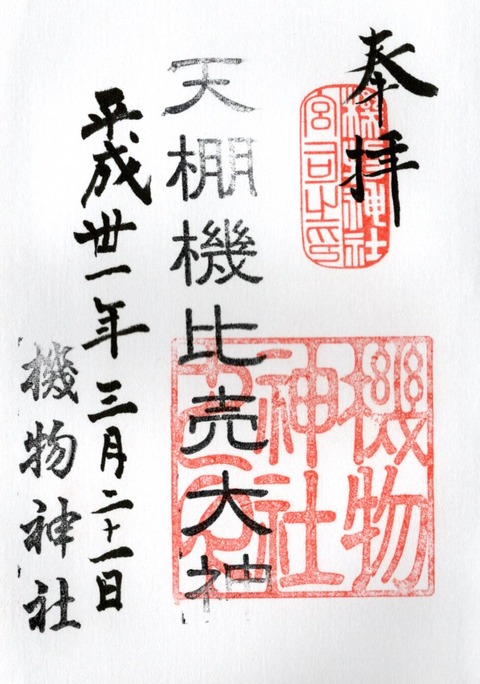 奉拝
機物神社
宮司之印
天棚機比売大神
機物
神社
平成丗一年三月二十一日
機物神社